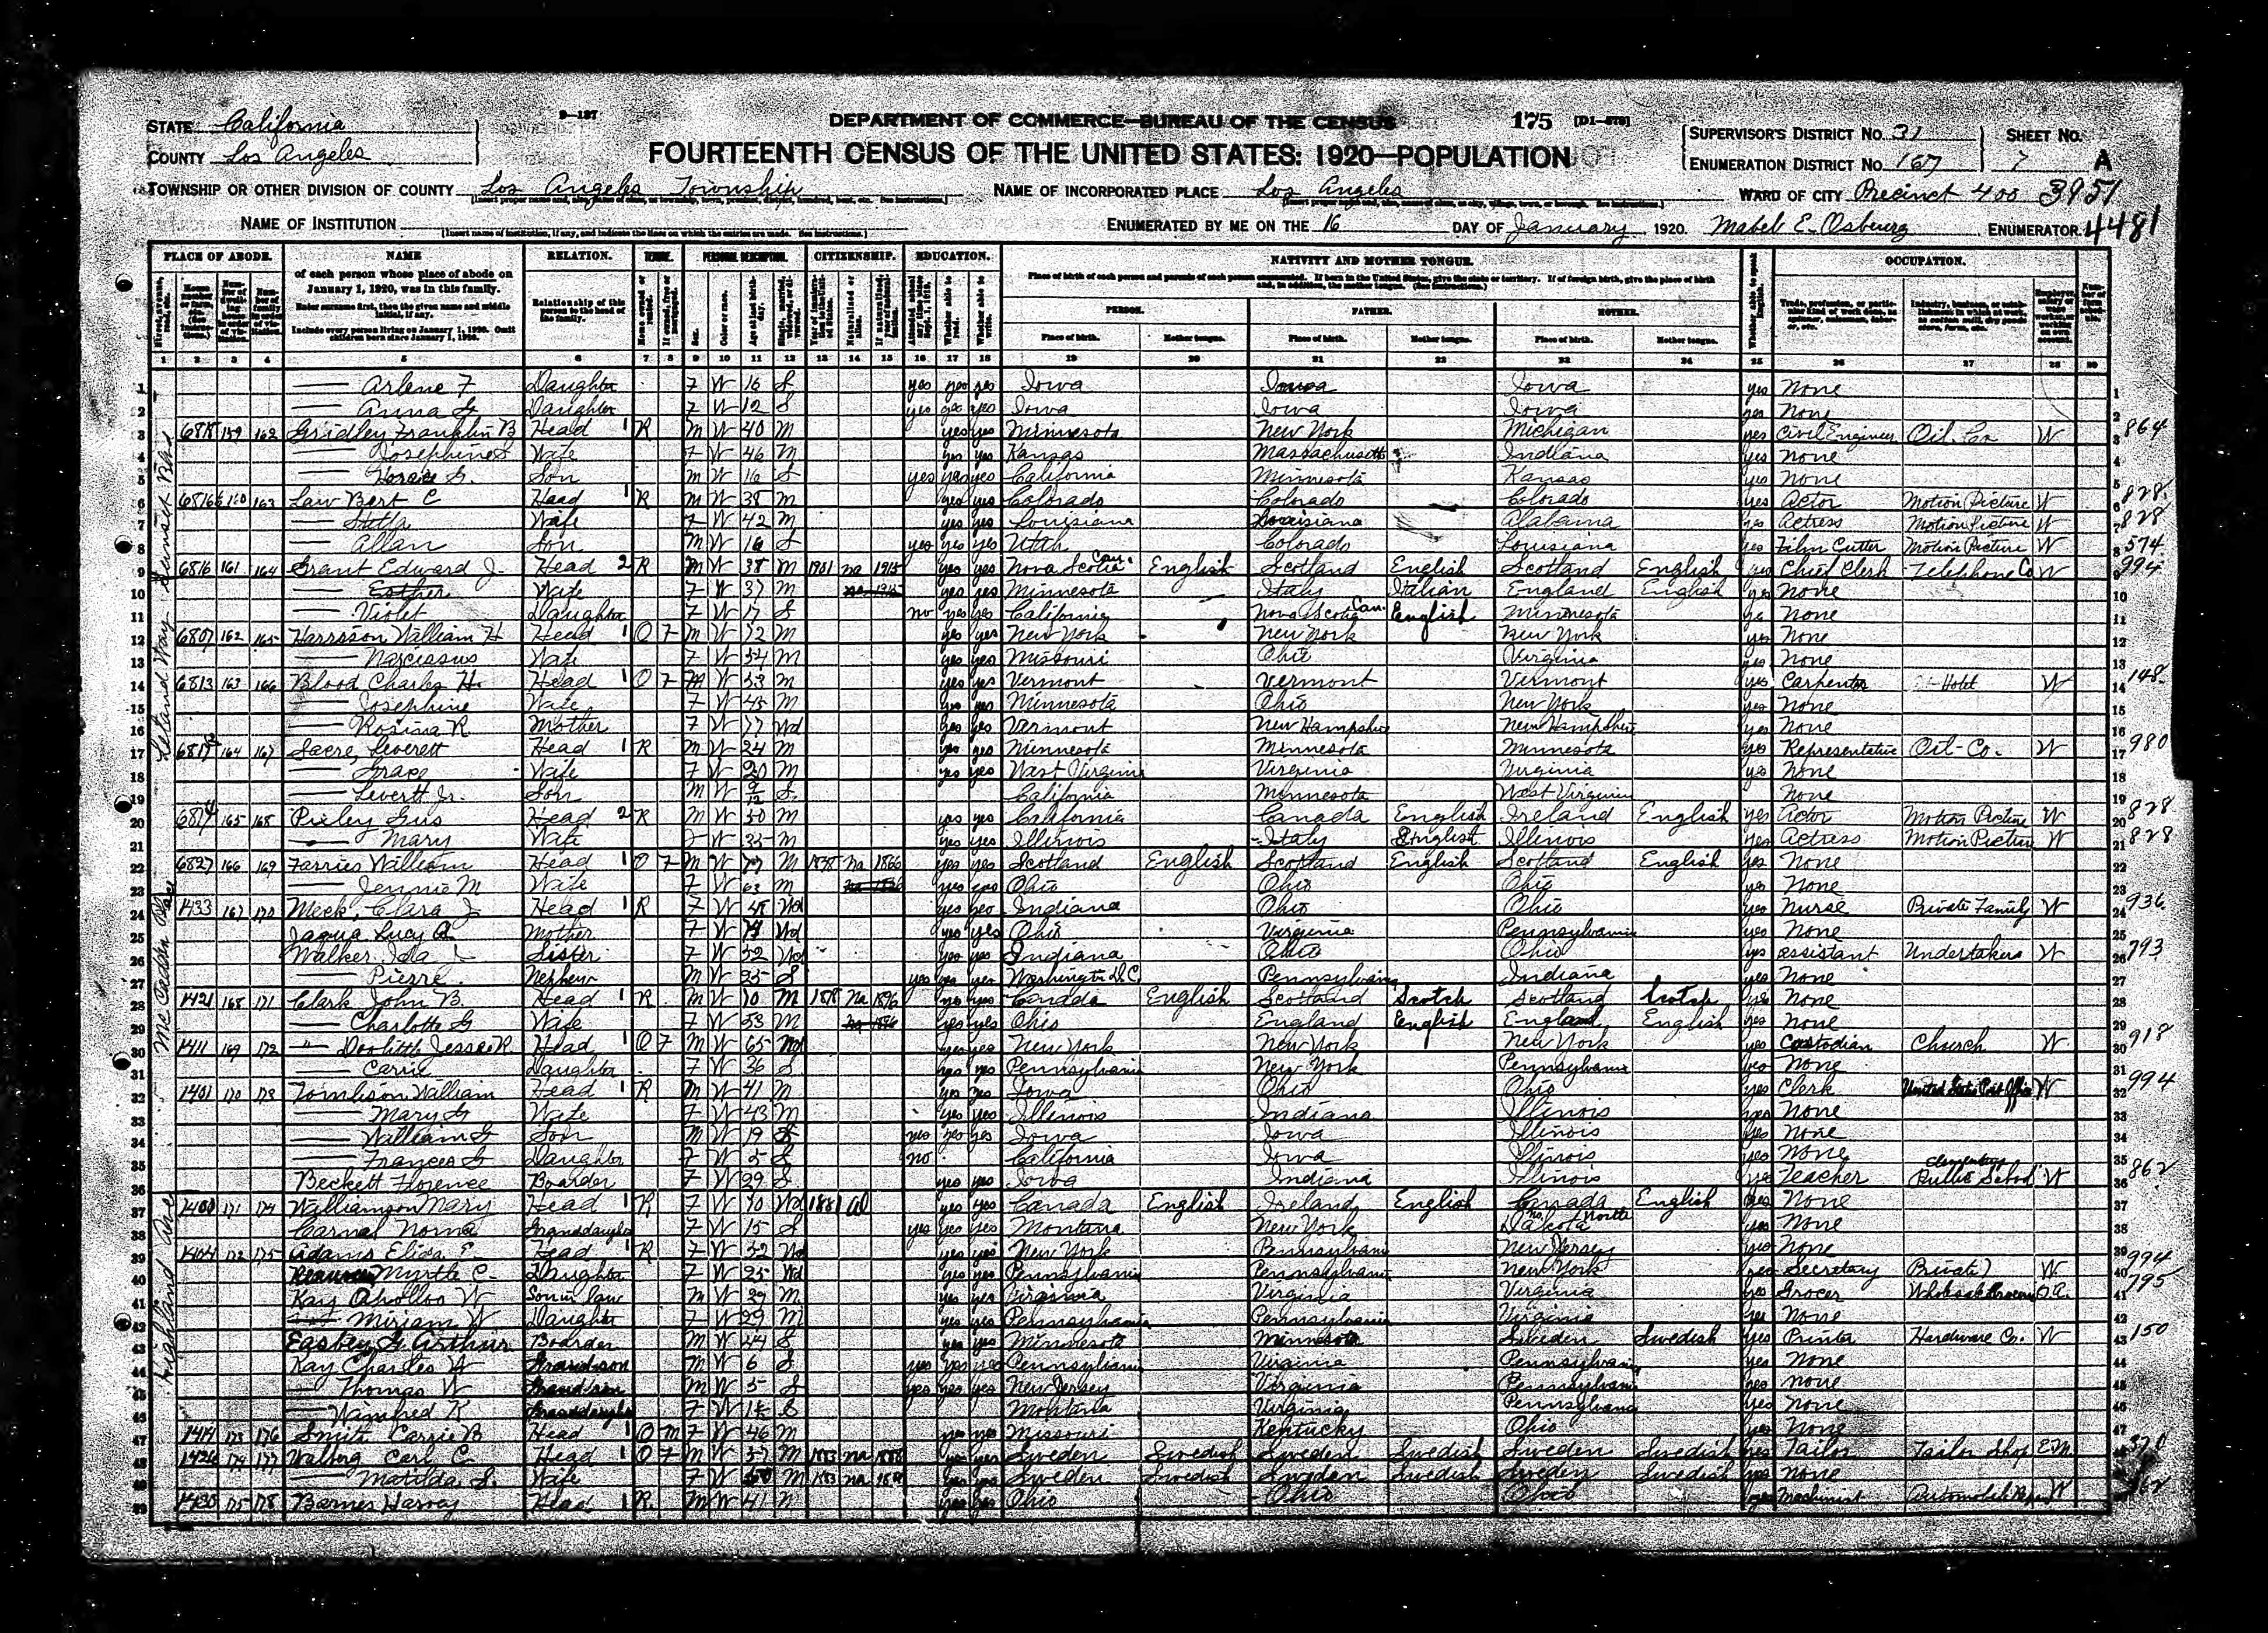 STATE California
COUNTY Los Angeles
9-127
DEPARTMENT OF COMMERCE—BUREAU OF THE CENSUS
175 [D1-578]
FOURTEENTH CENSUS OF THE UNITED STATES: 1920—POPULATION
SUPERVISOR'S DISTRICT No. 31 SHEET No.
ENUMERATION DISTRICT No. 167 7 A
TOWNSHIP OR OTHER DIVISION OF COUNTY Los Angeles Township NAME OF INCORPORATED PLACE Los Angeles WARD OF CITY Precinct 400 3951
NAME OF INSTITUTION ENUMERATED BY ME ON THE 16 DAY OF January, 1920. Mabel E. Osburg ENUMERATOR. 4481
PLACE OF ABODE. NAME RELATION. TENURE. PERSONAL DESCRIPTION. CITIZENSHIP. EDUCATION. NATIVITY AND MOTHER TONGUE. OCCUPATION.
of each person whose place of abode on January 1, 1920, was in this family.
Relationship of this person to the head of the family.
PERSON. FATHER. MOTHER.
Place of birth. Mother tongue. Place of birth. Mother tongue. Place of birth. Mother tongue.
1 2 3 4 5 6 7 8 9 10 11 12 13 14 15 16 17 18 19 20 21 22 23 24 25 26 27 28 29
1 — Arlene F Daughter F W 16 S yes yes yes Iowa Iowa Iowa yes None
2 — Anna G Daughter F W 12 S yes yes yes Iowa Iowa Iowa yes None
3 159 162 Gridley Franklin B Head 1 R M W 40 M yes yes Minnesota New York Michigan yes Civil Engineer Oil Co W 864
4 — Josephine Wife F W 46 M yes yes Kansas Massachusetts Indiana yes None
5 — Son M W 16 S yes yes yes California Minnesota Kansas yes None
6 163 Law Bert C Head 1 R M W 38 M yes yes Colorado Colorado Colorado yes Actor Motion Picture W 828
7 — Wife F W 42 M yes yes Louisiana Louisiana Alabama yes Actress Motion Picture W 828
8 — Allan Son M W 16 S yes yes yes Utah Colorado Louisiana yes Film Cutter Motion Picture W 574
9 6816 161 164 Grant Edward J. Head 2 R M W 38 M 1901 na 1915 yes yes Nova Scotia Can. English Scotland English Scotland English yes Chief Clerk Telephone Co W 994
10 — Esther Wife F W 37 M yes yes Minnesota Italy Italian England English yes None
11 — Violet Daughter F W 17 S no yes yes California Nova Scotia Can. English Minnesota yes None
12 6807 162 165 Harrison William H Head 1 O F M W 72 M yes yes New York New York New York yes None
13 — Narcissus Wife F W 54 M yes yes Missouri Ohio Virginia yes None
14 6813 163 166 Blood Charles H. Head 1 O F M W 53 M yes yes Vermont Vermont Vermont yes Carpenter Hotel W 148
15 — Josephine Wife F W 45 M yes yes Minnesota Ohio New York yes None
16 — Rosina R Mother F W 77 Wd yes yes Vermont New Hampshire New Hampshire yes None
17 164 167 Sacre, Leverett Head 1 R M W 24 M yes yes Minnesota Minnesota Minnesota yes Representative Oil-Co. W 980
18 — Grace Wife F W 20 M yes yes West Virginia Virginia Virginia yes None
19 — Leverett Jr. Son M W 9/12 S California Minnesota West Virginia None
20 165 168 Pixley Gus Head 2 R M W 50 M yes yes California Canada English Ireland English yes Actor Motion Picture W 828
21 — Mary Wife F W 35 M yes yes Illinois Italy English Illinois yes Actress Motion Picture W 828
22 6827 166 169 Farries William Head 1 O F M W 77 M na 1866 yes yes Scotland English Scotland English Scotland English yes None
23 — Jennie M Wife F W 63 M yes yes Ohio Ohio Ohio yes None
24 1433 167 170 Meek, Clara J Head 1 R F W 48 Wd yes yes Indiana Ohio Ohio yes Nurse Private Family W 936
25 Jaqua Lucy A. Mother F W Wd yes yes Ohio Virginia Pennsylvania yes None
26 Walker, Ida Sister F W 52 Wd yes yes Indiana Ohio Ohio yes assistant Undertakers W 793
27 — Pierre Nephew M W 25 S yes yes yes Washington D.C. Pennsylvania Indiana yes None
28 1421 168 171 Clark John B. Head 1 R M W 70 M 1878 Na 1896 yes yes Canada English Scotland Scotch Scotland Scotch yes None
29 — Charlotte G Wife F W 53 M yes yes Ohio England English England English yes None
30 1411 169 172 Doolittle Jesse R. Head 1 O F M W 65 Wd yes yes New York New York New York yes Custodian Church W 918
31 — Carrie Daughter F W 36 S yes yes Pennsylvania New York Pennsylvania yes None
32 1401 170 173 Tomlison William Head 1 R M W 41 M yes yes Iowa Ohio Ohio yes Clerk United States Post Office W 994
33 — Mary G Wife F W 43 M yes yes Illinois Indiana Illinois yes None
34 — William G Son M W 19 S yes yes yes Iowa Iowa Illinois yes None
35 — Frances G Daughter F W 5 S no California Iowa Illinois yes None
36 Beckett Florence Boarder F W 29 S yes yes Iowa Indiana Illinois yes Teacher Elementary Public School W 862
37 1400 171 174 Williamson Mary Head 1 R F W 70 Wd 1881 al yes yes Canada English Ireland English Canada English yes None
38 Carnal Norma Granddaughter F W 15 S yes yes yes Montana New York Dakota North yes None
39 1404 172 175 Adams Eliza E. Head 1 R F W 52 Wd yes yes New York Pennsylvania New Jersey yes None
40 Myrtle C. Daughter F W 25 Wd yes yes Pennsylvania Pennsylvania New York yes Secretary Private W 994
41 Kay Apolloo W Son in law M W 29 M yes yes Virginia Virginia Virginia yes Grocer Wholesale Grocery O.A. 795
42 — Miriam W Daughter F W 29 M yes yes Pennsylvania Pennsylvania Virginia yes None
43 Arthur Boarder M W 24 S yes yes Minnesota Minnesota Sweden Swedish yes Printer Hardware Co. W 150
44 Kay Charles W Grandson M W 6 S yes yes yes Pennsylvania Virginia Pennsylvania yes None
45 — Thomas W Grandson M W 5 S yes yes yes New Jersey Virginia Pennsylvania yes None
46 — Winifred K Granddaughter F W S Montana Virginia Pennsylvania yes None
47 1414 173 176 Smith Carrie B Head 1 O M F W 46 M yes yes Missouri Kentucky Ohio yes None
48 1426 174 177 Walberg Carl C. Head 1 O F M W 57 M 1883 na 1888 yes yes Sweden Swedish Sweden Swedish Sweden Swedish yes Tailor Tailor Shop Em
49 — Matilda S. Wife F W M 1883 na yes yes Sweden Swedish Sweden Swedish Sweden Swedish yes None
50 1430 175 178 Barnes Harvey Head 1 R. M W 41 M yes yes Ohio Ohio Ohio yes Machinist Automobile W
Leland Way
Sunset Blvd
McCadden Place
Highland Ave